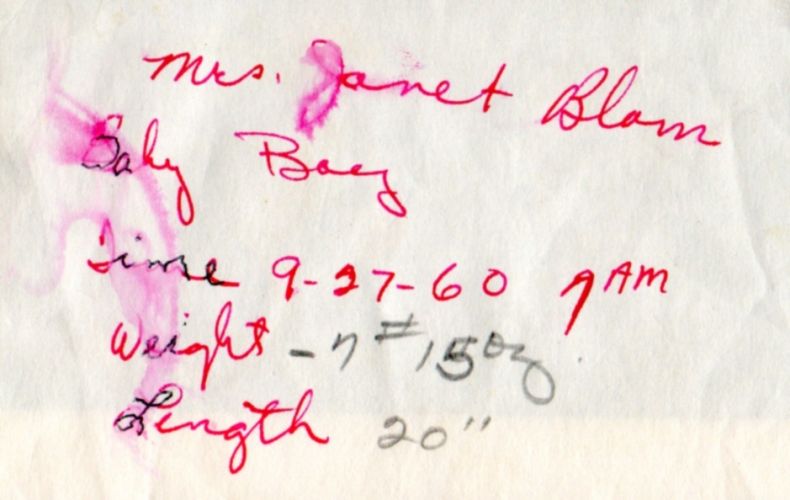 Mrs. Janet Blom
Baby Boy
Time 9-27-60 7 AM
Weight - 7 # 15 oz.
Length 20"